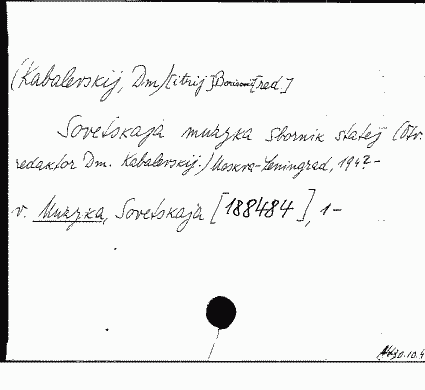 (Kabalevskij, Dm/[itrij] Borisovič [red.]
Sovetskaja muzyka sbornik statej (Otv.
redaktor Dm. Kabalevskij.) Moskva-Leningrad, 194?-
v. Muzyka, Sovetskaja [188484], 1-
30.10.4